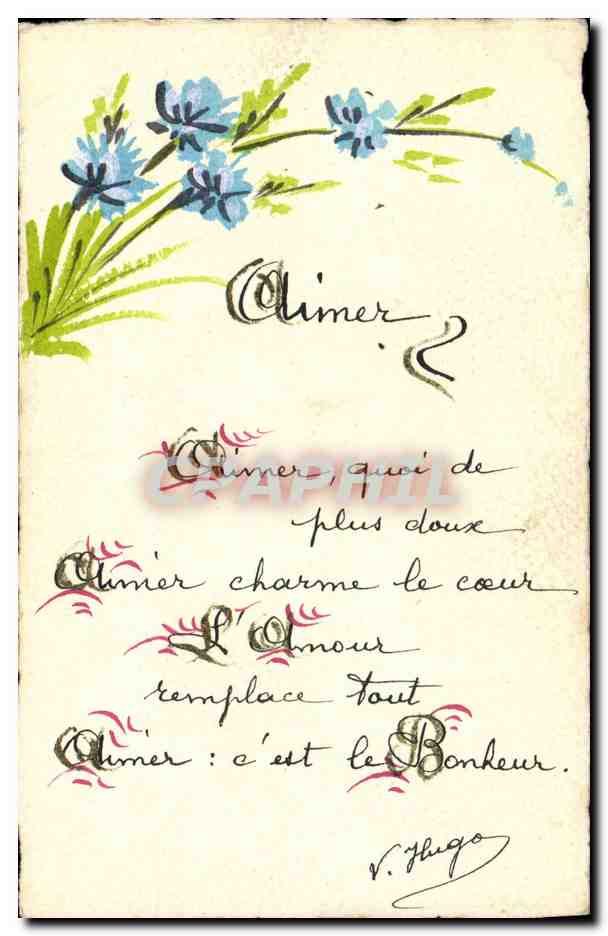 Aimer
Aimer, quoi de
plus doux
Aimer charme le cœur
L'Amour
remplace tout
Aimer : c'est le Bonheur.
V. Hugo
CPAPHIL